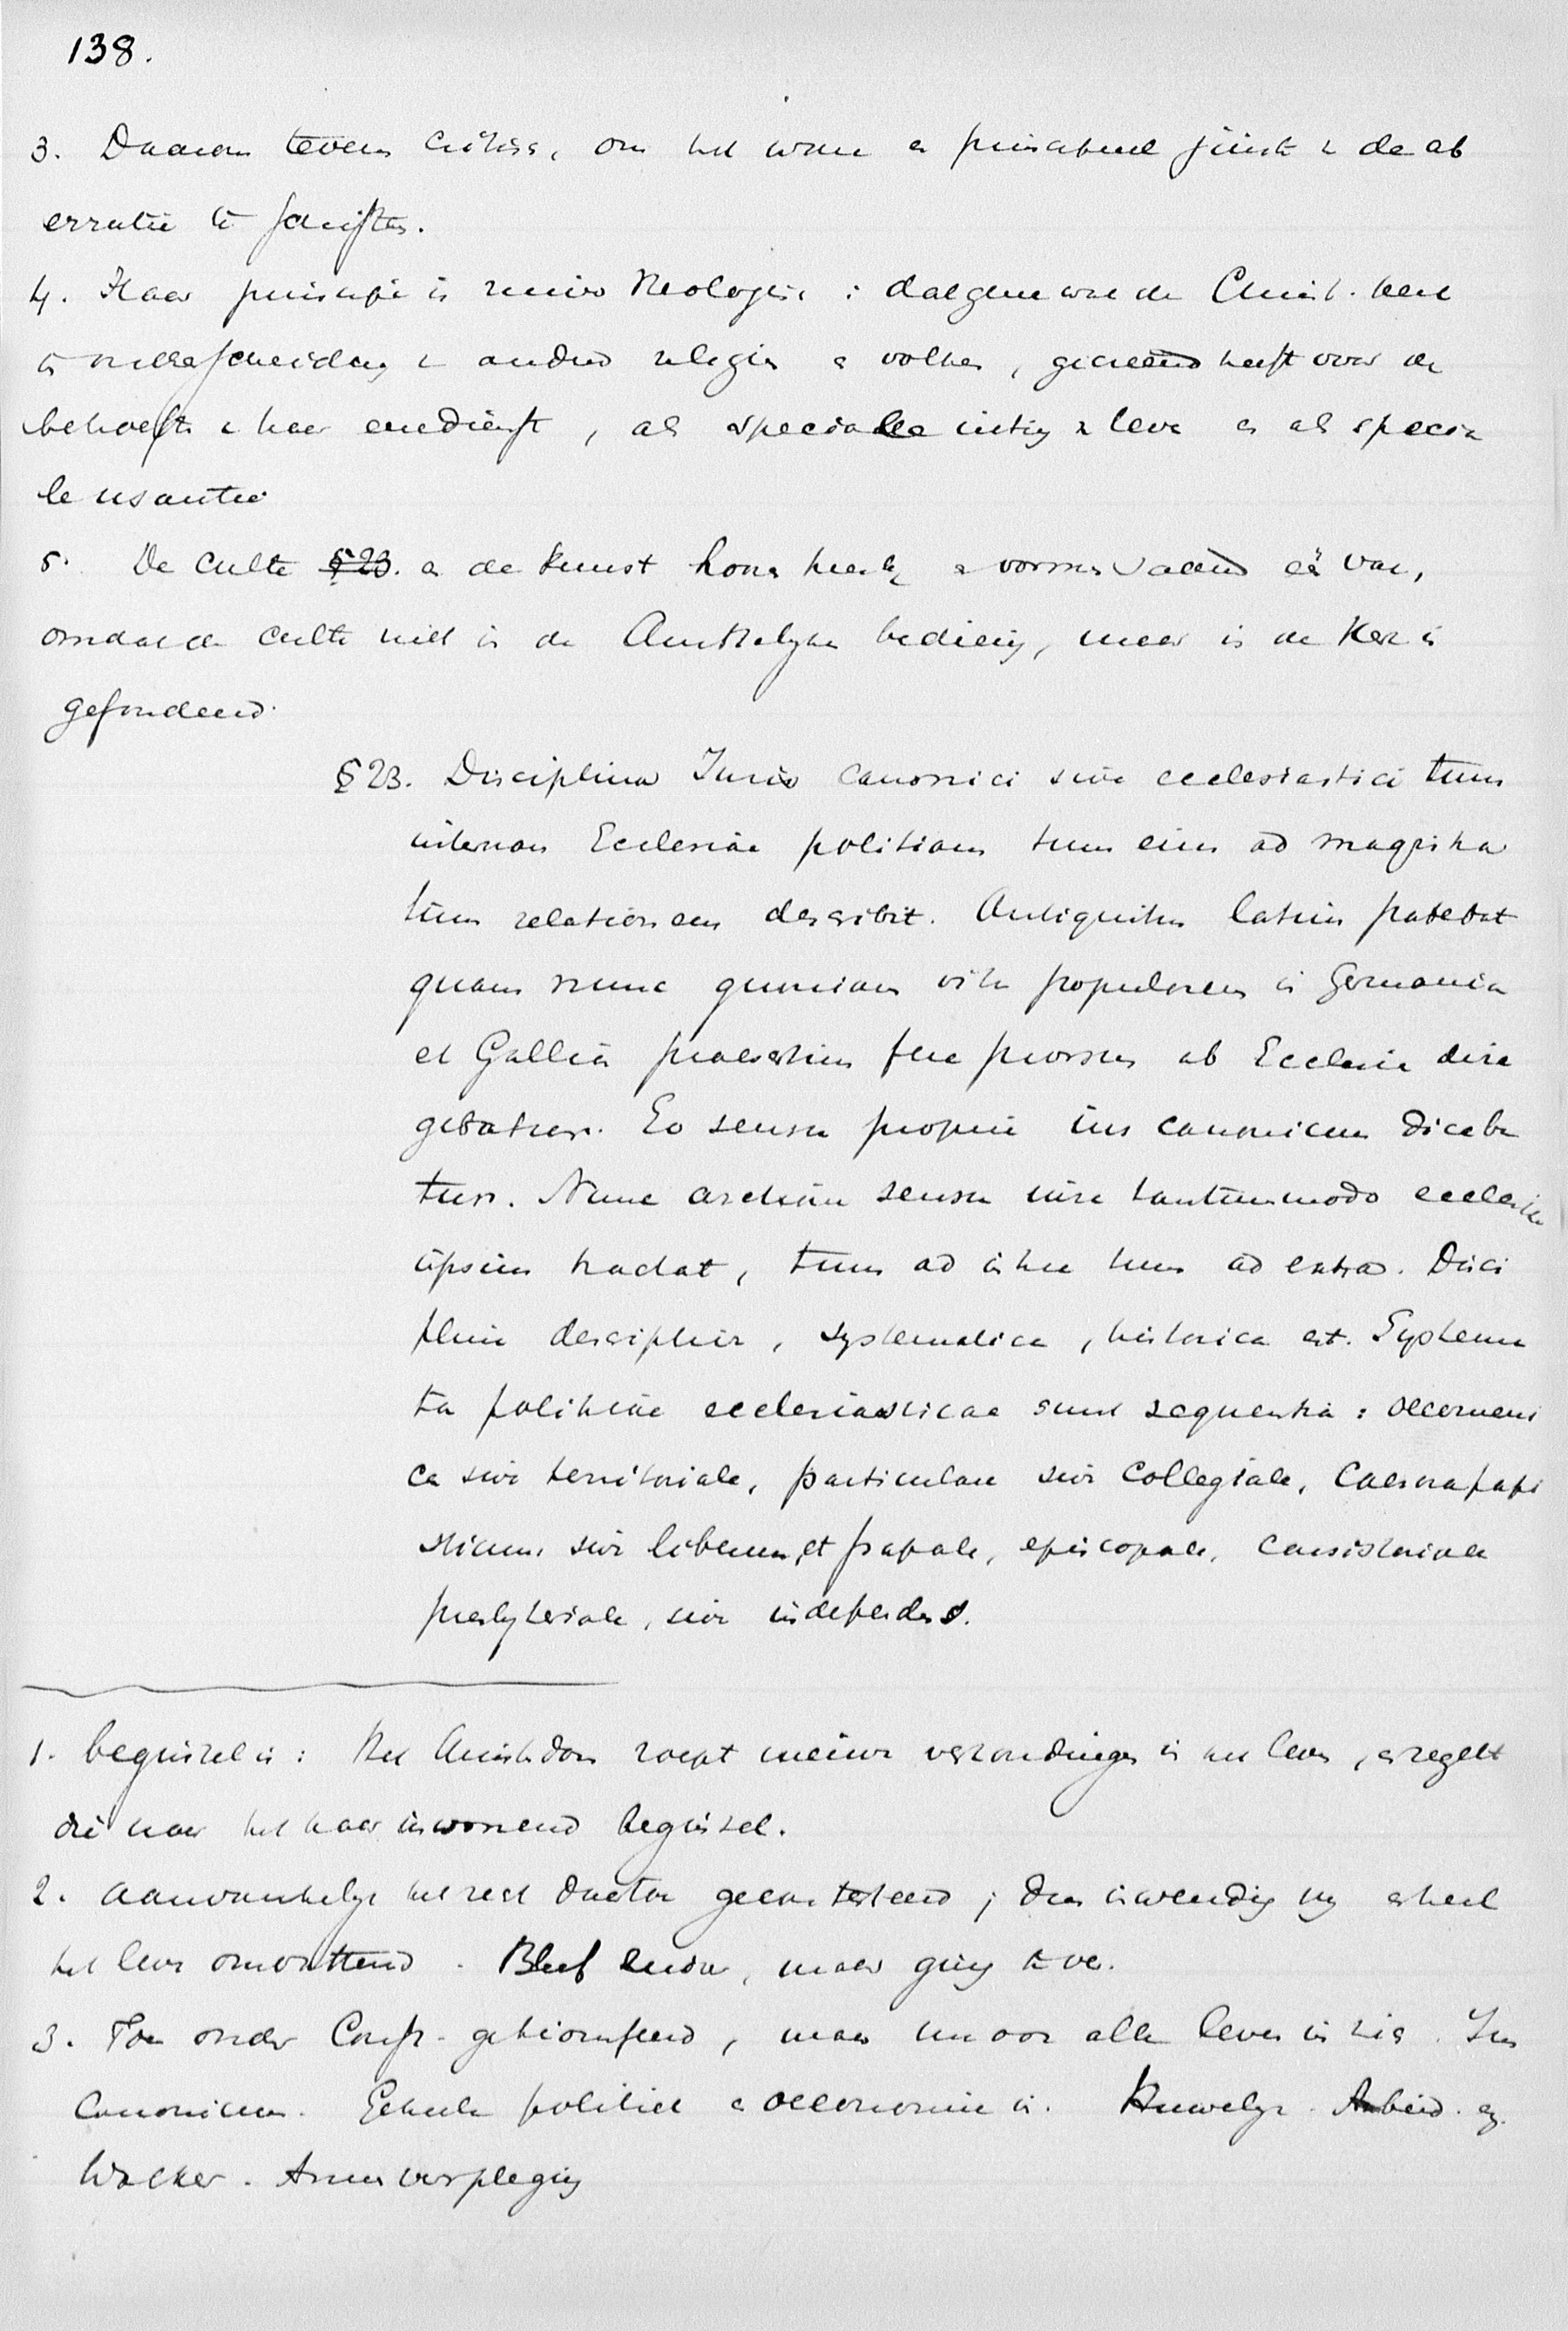 138.
3. Daarom tevens critisch, om het ware en principieel juiste v de ab
erratie te schiften.
4. Haar principe is zuiver theologisch : datgene wat de Christ. kerk
te onderscheiding v andere religies en volken, gecreëerd heeft voor de
behoefte v haar eeredienst, als speciale uiting v leven en als specia
le usantie
5. De culte §23. en de kunst komen hierbij voor,
omdat de culte niet in de Ambtelijke bediening, maar in de Kerk is
gefundeerd.
§23. Disciplina Juris canonici sive ecclesiastici tum
internam Ecclesiae politiam tum eius ad magistra
tum relationem describit. Antiquitus latius patebat
quam nunc quoniam vita populorum in Germania
et Gallia praesertim fere prorsus ab Ecclesia diri
gebatur. Eo sensu proprie ius canonicum diceba
tur. Nunc arctiori sensu iura tantummodo ecclesiae
ipsius tractat, tum ad intra tum ad extra. Disci
plina descriptiva, systematica, historica est. Systema
ta politiae ecclesiasticae sunt sequentia : oecumeni
ca sive territoriale, particulare sive collegiale, Caesaropapi
sticum sive liberum, et papale, episcopale, consistoriale
presbyteriale, sive independens.
1. beginsel is : Het Christendom roept nieuwe verhoudingen in het leven, en regelt
die naar het haar inwonend beginsel.
2. Aanvankelijk het recht daartoe gecontesteerd ; dus inwendig nog en heel
het leven omvattend. Bleef leidsn, maar ging te ver.
3. Toen onder Const. getriomfeerd, maar nu ook alle leven in zich. Ius
Canonicum. Geheele politiek en oeconomie in. Huwelijk. Arbeid. en.
Woeker. Armverpleging